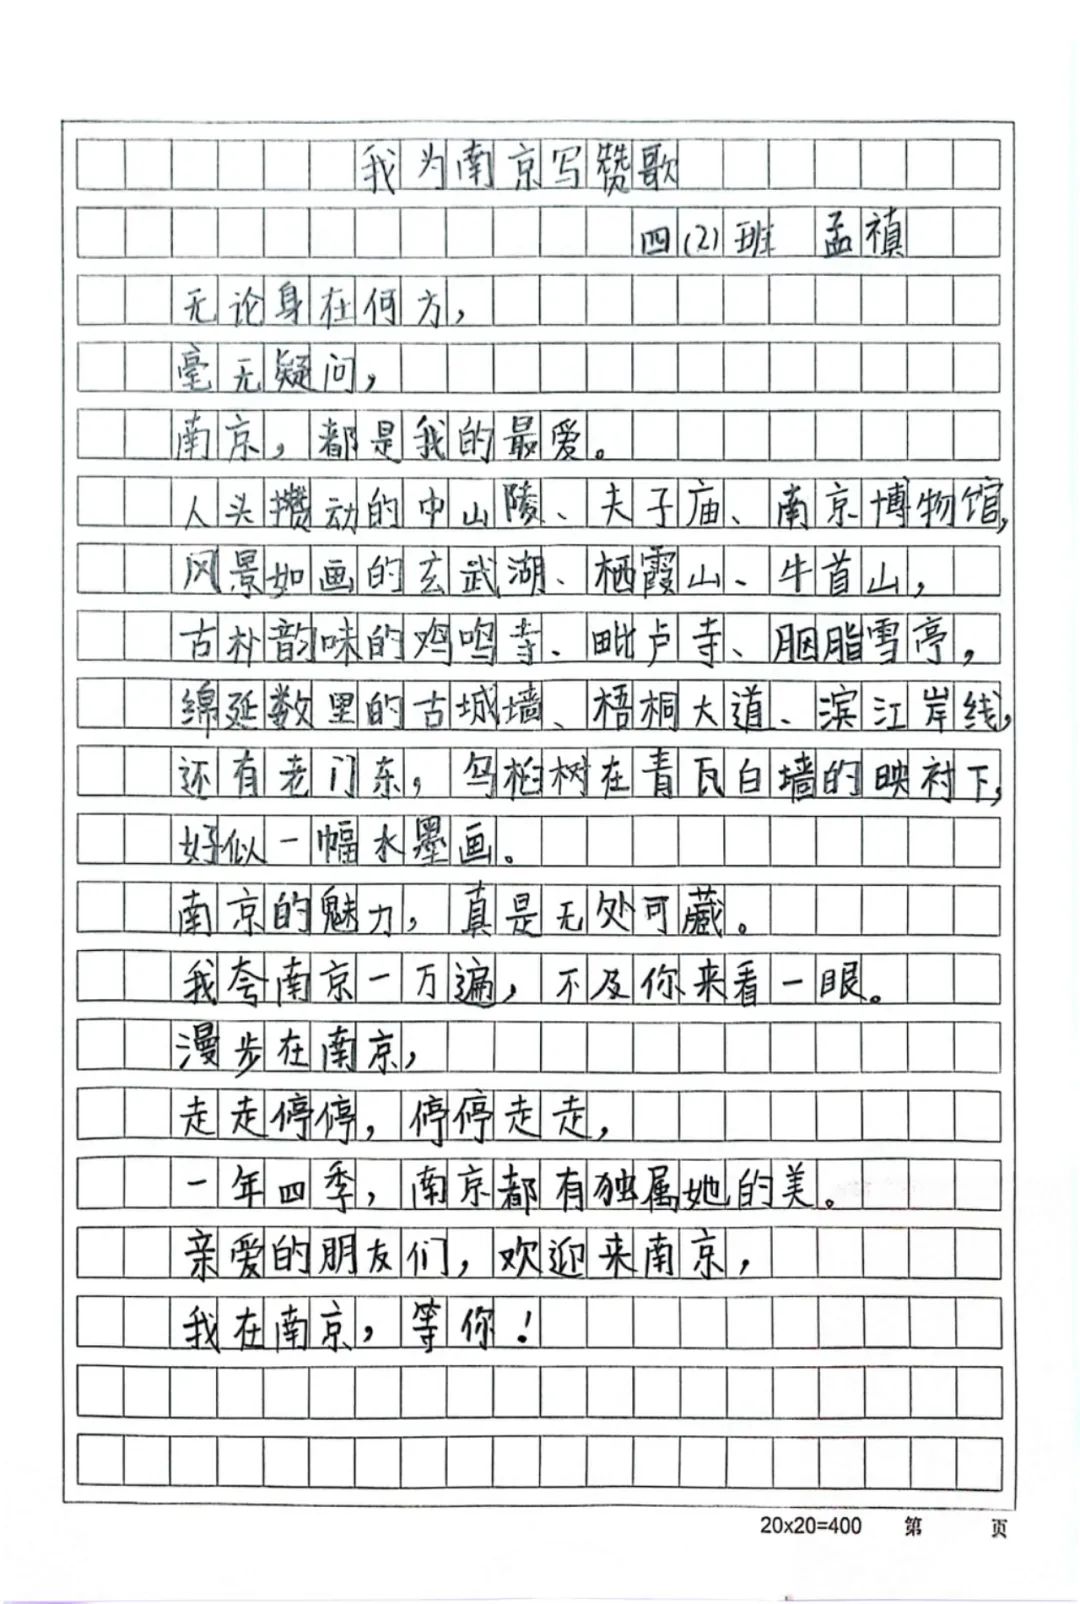 我为南京写赞歌
四(2)班 孟禛
无论身在何方，
毫无疑问，
南京，都是我的最爱。
人头攒动的中山陵、夫子庙、南京博物馆，
风景如画的玄武湖、栖霞山、牛首山，
古朴韵味的鸡鸣寺、毗卢寺、胭脂雪亭，
绵延数里的古城墙、梧桐大道、滨江岸线，
还有老门东，乌桕树在青瓦白墙的映衬下，
好似一幅水墨画。
南京的魅力，真是无处可藏。
我夸南京一万遍，不及你来看一眼。
漫步在南京，
走走停停，停停走走，
一年四季，南京都有独属她的美。
亲爱的朋友们，欢迎来南京，
我在南京，等你！
20x20=400 第 页